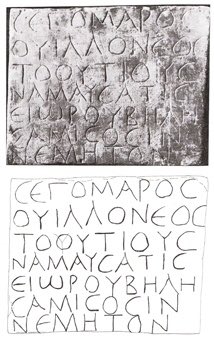 ϹΕΓΟΜΑΡΟϹ
ΟΥΙΛΛΟΝΕΟϹ
ΤΟΟΥΤΙΟΥϹ
ΝΑΜΑΥϹΑΤΙϹ
ΕΙωΡΟΥΒΗΛΗ
ϹΑΜΙϹΟϹΙΝ
ΝΕΜΗΤΟΝ
ϹΕΓΟΜΑΡΟϹ
ΟΥΙΛΛΟΝΕΟϹ
ΤΟΟΥΤΙΟΥϹ
ΝΑΜΑΥϹΑΤΙϹ
ΕΙωΡΟΥΒΗΛΗ
ϹΑΜΙϹΟϹΙΝ
ΝΕΜΗΤΟΝ